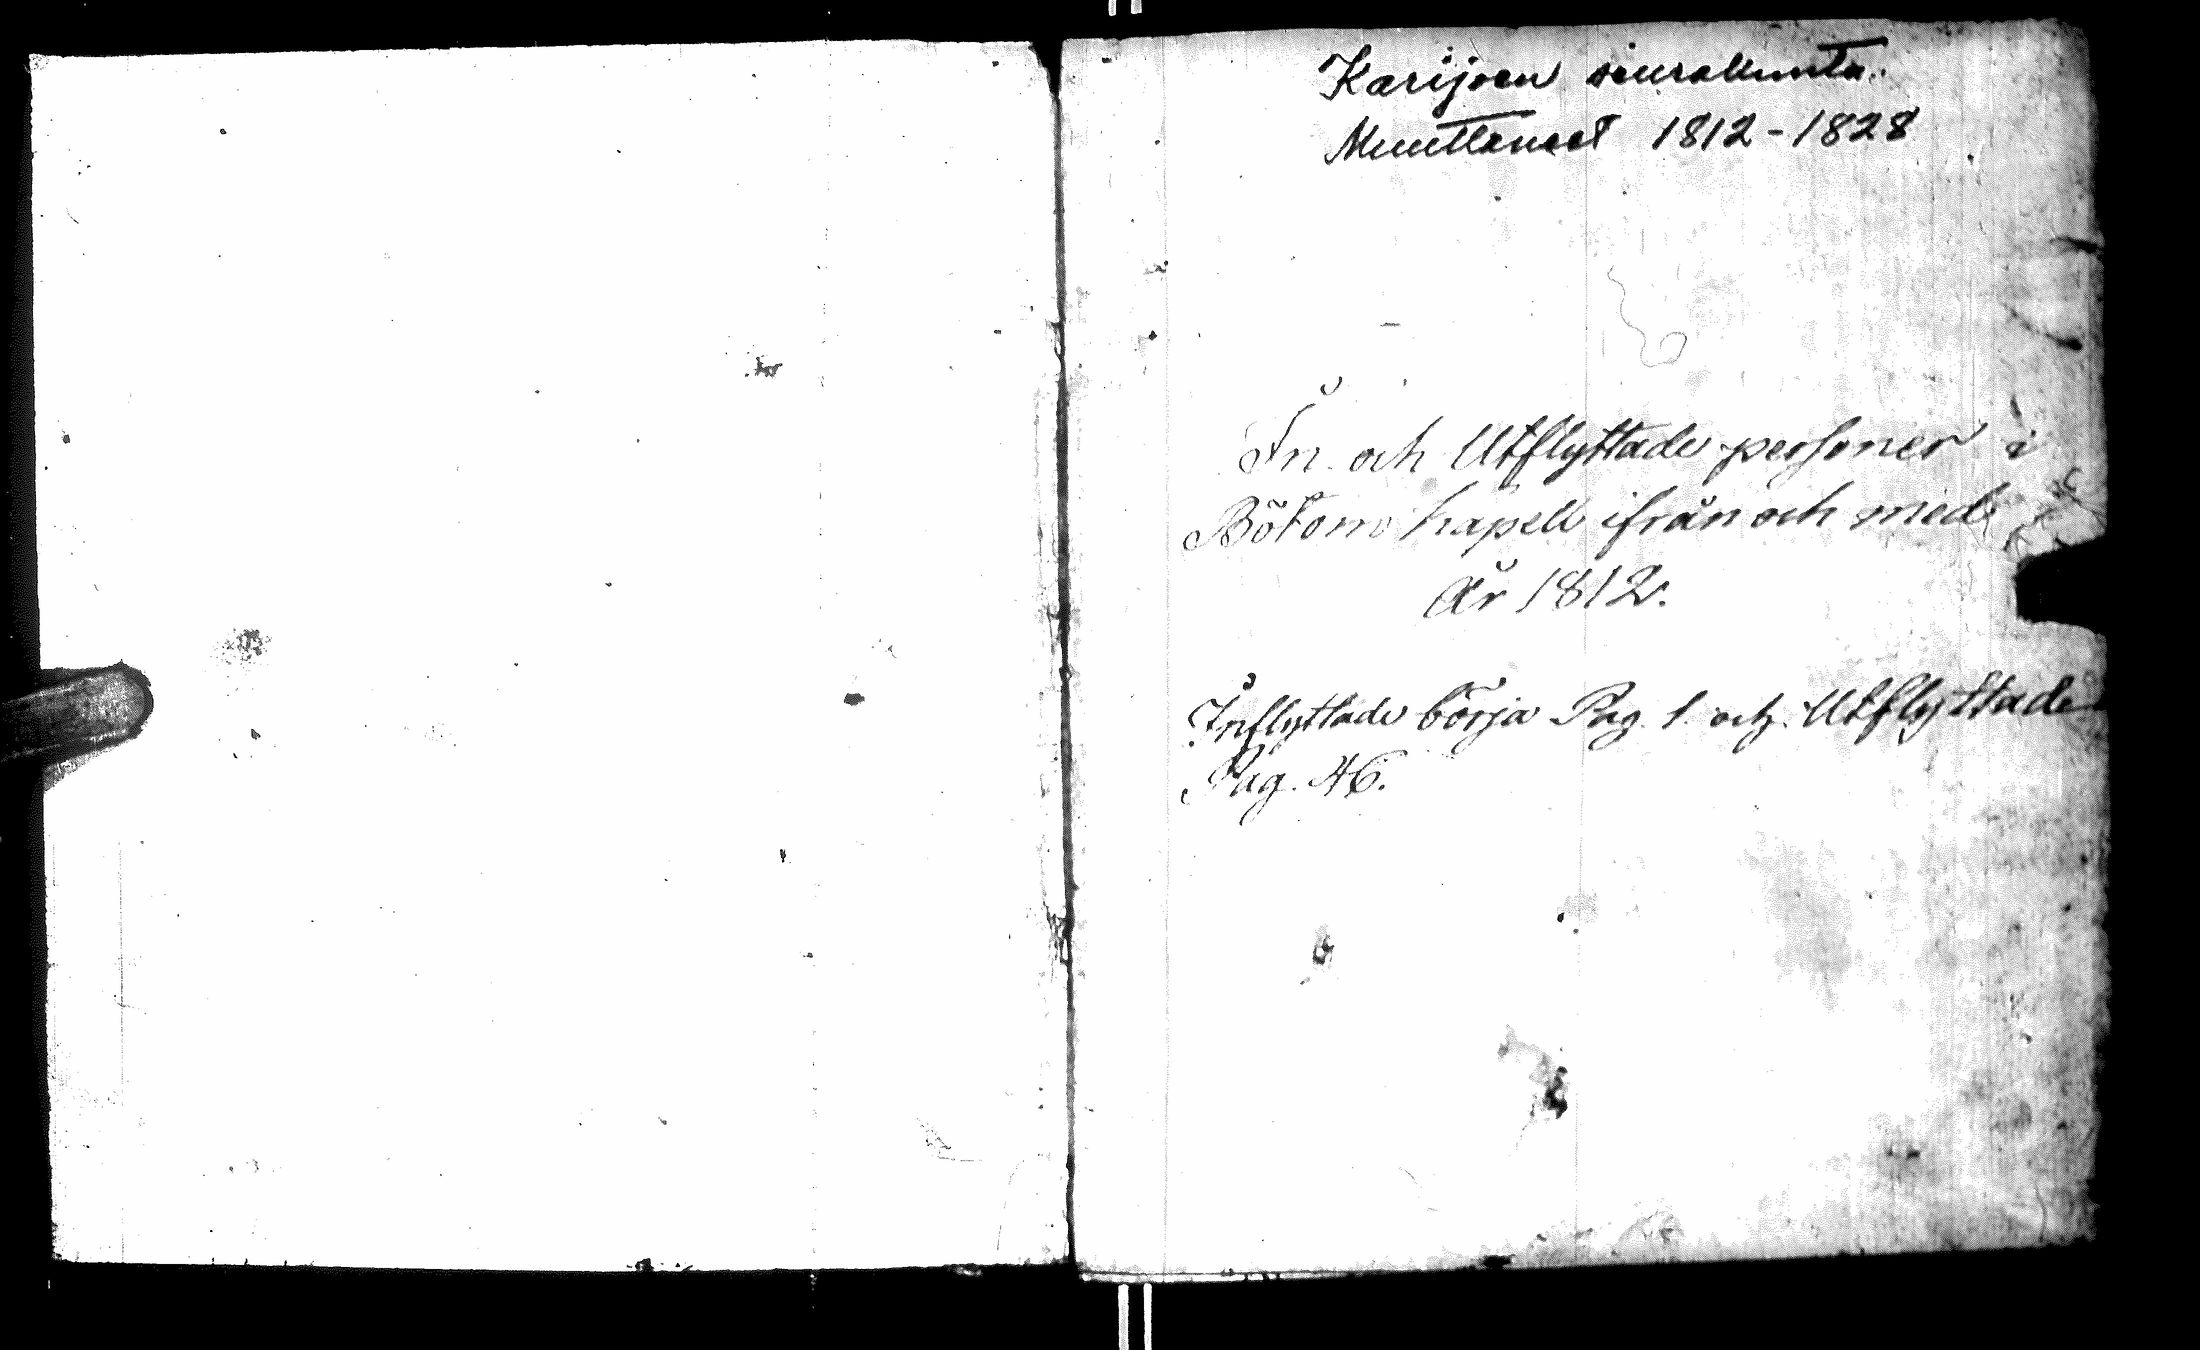 Karijoen seurakunta.
Muuttaneet 1812-1828
In och Utflyttade personer i
Bötom kapell ifrån och med
År 1812.
Inflyttade börja Pag. 1. och Utflyttade
Pag. 46.